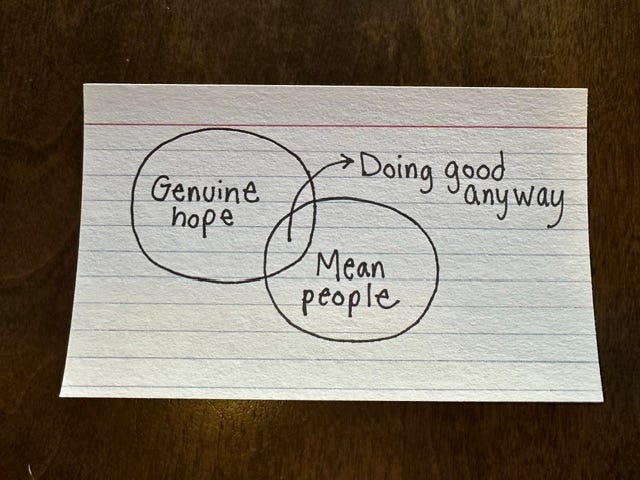 Genuine
hope
Doing good
anyway
Mean
people